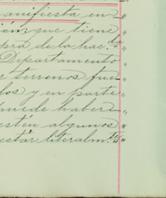 manifiesta en
que tiene
de la hac.ta
Departamento
terrenos fue
dos y en parte
puede haber
estén algunos
estar literalm.te